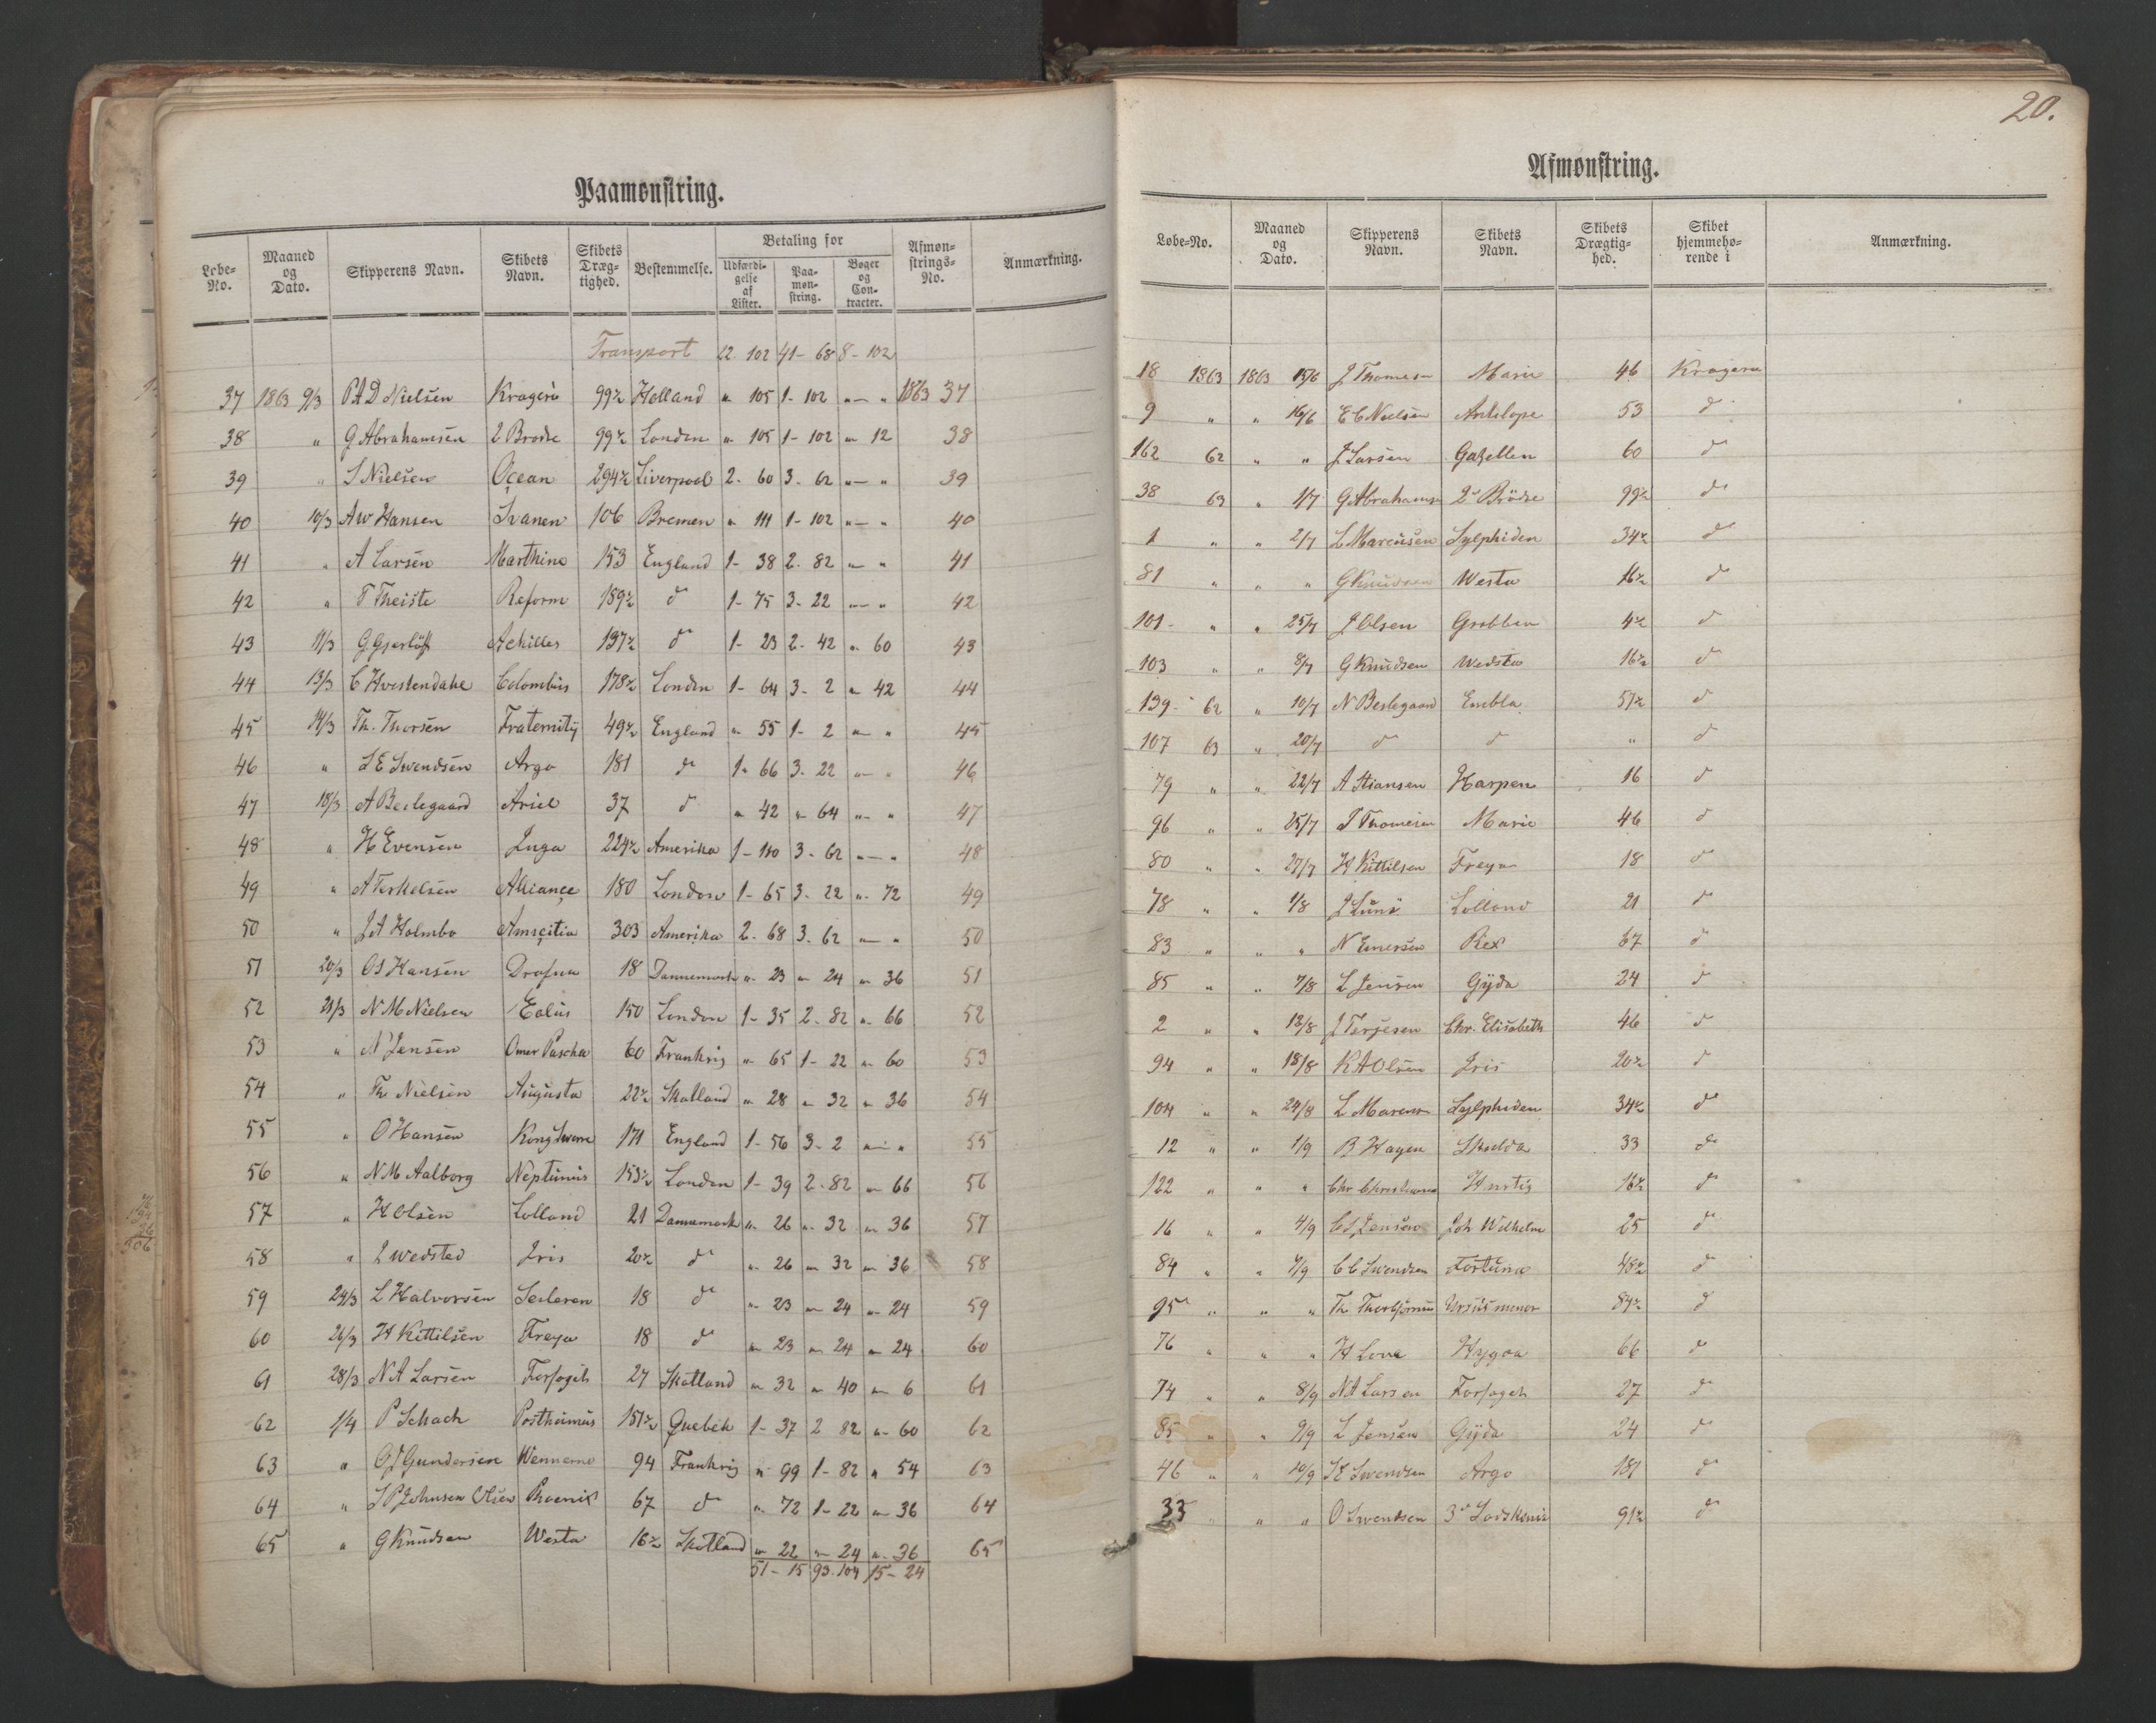 Paamønstring.
Løbe-No. Maaned og Dato. Skipperens Navn. Skibets Navn. Skibets Drægtighed. Bestemmelse. Betaling for Udfærdigelse af Lister. Paamønstring. Bøger og Contracter. Afmønstrings-No. Anmærkning.
Transport 22. 102 41- 68 8- 102
37 1863 9/3 P A D Nielsen Kragerö 99½ Holland " 105 1- 102 "-" 1863 37
38 " G Abrahamsen 2 Brödre 99½ London " 105 1- 102 " 12 38
39 " S Nielsen Ocean 294½ Liverpool 2. 60 3. 62 "-" 39
40 10/3 A W Hansen Svanen 106 Bremen " 111 1- 102 "-" 40
41 " A Larsen Marthine 153 England 1- 38 2. 82 "-" 41
42 " T Theiste Reform 189½ do 1- 75 3- 22 "-" 42
43 11/3 G Gjerløff Achilles 137½ do 1- 23 2- 42 " 60 43
44 13/3 C Hvestendahl Colombus 178½ London 1- 64 3- 2 " 42 44
45 14/3 Th. Thorsen Fraternity 49½ England " 55 1- 2 "-" 45
46 " S E Svendsen Argo 181 do 1- 66 3. 22 "-" 46
47 18/3 A Beslegaard Ariel 37 do " 42 " 64 "-" 47
48 " H Evensen Inga 224½ Amerika 1- 110 3- 62 "-" 48
49 " A Terkelsen Alliance 180 London 1- 65 3- 22 " 72 49
50 " J A Holmbo Amicitia 303 Amerika 2. 68 3. 62 "-" 50
51 20/3 O S Hansen Drafna 18 Dannemark " 23 " 24 " 36 51
52 21/3 N M Nielsen Eolus 150 London 1- 35 2- 82 " 66 52
53 " N Jensen Omer Pascha 60 Frankrig " 65 1- 22 " 60 53
54 " Th Nielsen Augusta 22½ Skotland " 28 " 32 " 36 54
55 " O Hansen Kong Swerre 171 England 1- 56 3- 2 "-" 55
56 " N M Aalborg Neptunus 153½ London 1- 39 2- 82 " 66 56
57 " H Olsen Lolland 21 Dannemark " 26 " 32 " 36 57
58 " J Wedsted Iris 20½ do " 26 " 32 " 36 58
59 24/3 L Halvorsen Seileren 18 do " 23 " 24 " 24 59
60 26/3 H Kittilsen Freya 18 do " 23 " 24 " 24 60
61 28/3 N A Larsen Forsöget 27 Skotland " 32 " 40 " 6 61
62 1/4 P Schach Posthumus 151½ Quebek 1- 37 2 82 " 60 62
63 " O J Gundersen 94 Frankrig " 99 1- 82 " 54 63
64 " S P Johnsen Olsen Phoenix 67 do " 72 1- 22 " 36 64
65 " G Knudsen Westa 16½ Skotland " 22 " 24 " 36 65
51- 15 93. 104 15- 24
20.
Afmønstring.
Løbe-No. Maaned og Dato. Skipperens Navn. Skibets Navn. Skibets Drægtighed. Skibet hjemmehørende i Anmærkning.
18 1863 1863 15/6 J Thomesen Marie 46 Kragerø
9 " " 16/6 E C Nielsen Antelope 53 do
162 62 " " J Larsen Gazellen 60 do
38 63 " 1/7 G Abrahamsen 2de Brödre 99½ do
1 " " 2/7 L Marcusen Sylphiden 34½ do
81 " " " G Knudsen Westa 16½ do
101 " " 25/7 J Olsen Grebben 4½ do
103 " " 8/7 G Knudsen Wedsta 16½ do
139 62 " 10/7 N Beslegaard Embla 51½ do
107 63 " 20/7 do do " do
79 " " 22/7 A Stiansen Harpen 16 do
96 " " 25/7 J Thomesen Marie 46 do
80 " " 27/7 H Kittilsen Freya 18 do
78 " " 1/8 J Lund Lolland 21 do
83 " " " N Ennersen Rex 67 do
85 " " 7/8 L Jensen Gyda 24 do
2 " " 12/8 J Terjesen Chr. Elisabeth 46 do
94 " " 18/8 K A Olsen Iris 20½ do
104 " " 24/8 L Marcusen Sylphiden 34½ do
12 " " 1/9 B Hagen Skulda 33 do
122 " " " Chr Christiansen Hurtig 16½ do
16 " " 4/9 C S Jensen Joh Wilhelm 25 do
84 " " 7/9 C C Svendsen Fortuna 48½ do
95 " " " Th Thorbjörnsen Ursus menor 84½ do
76 " " " H Love Hygea 66 do
74 " " 8/9 N A Larsen Forsöget 27 do
85 " " 9/9 L Jensen Gyda 24 do
46 " " 10/9 S E Svendsen Argo 181 do
33 " " " O Svendsen 3de Sødskende 91½ do